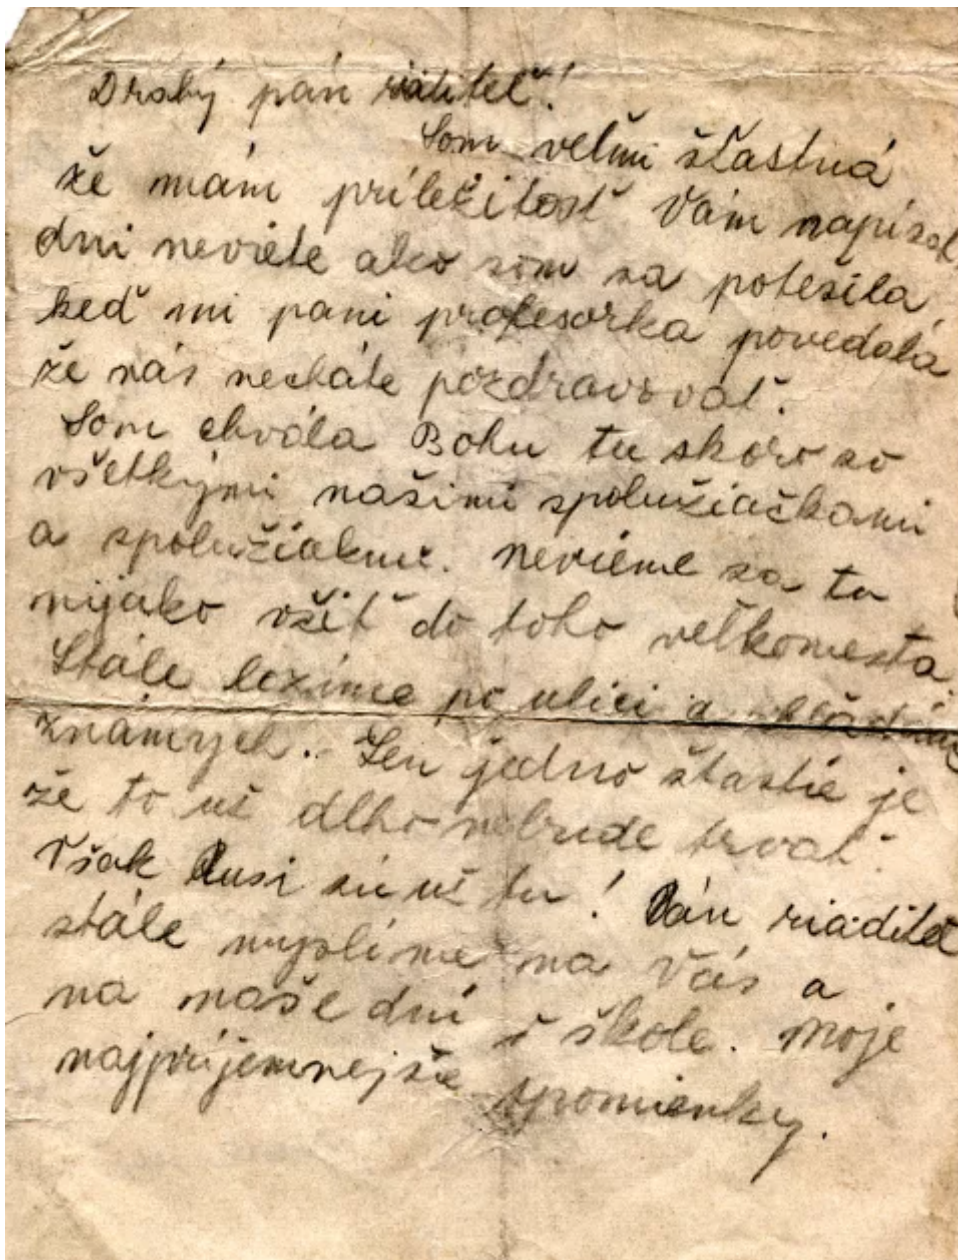 Drahý pán riaditeľ!
Som veľmi šťastná
že mám príležitosť Vám napísať,
ani neviete ako som sa potešila,
keď mi pani profesorka povedala
že nás necháte pozdravovať.
Som chvála Bohu tu skoro so
všetkými našimi spolužiačkami
a spolužiakmi. Nevieme sa tu
nijako vžiť do toho veľkomesta.
Stále lezíme po ulici a
známych. Len jedno šťastie je
že to už dlho nebude trvať.
Však Rusi sú už tu! Pán riaditeľ
stále myslíme na Vás a
na naše dni v škole. Moje
najpríjemnejšie spomienky.